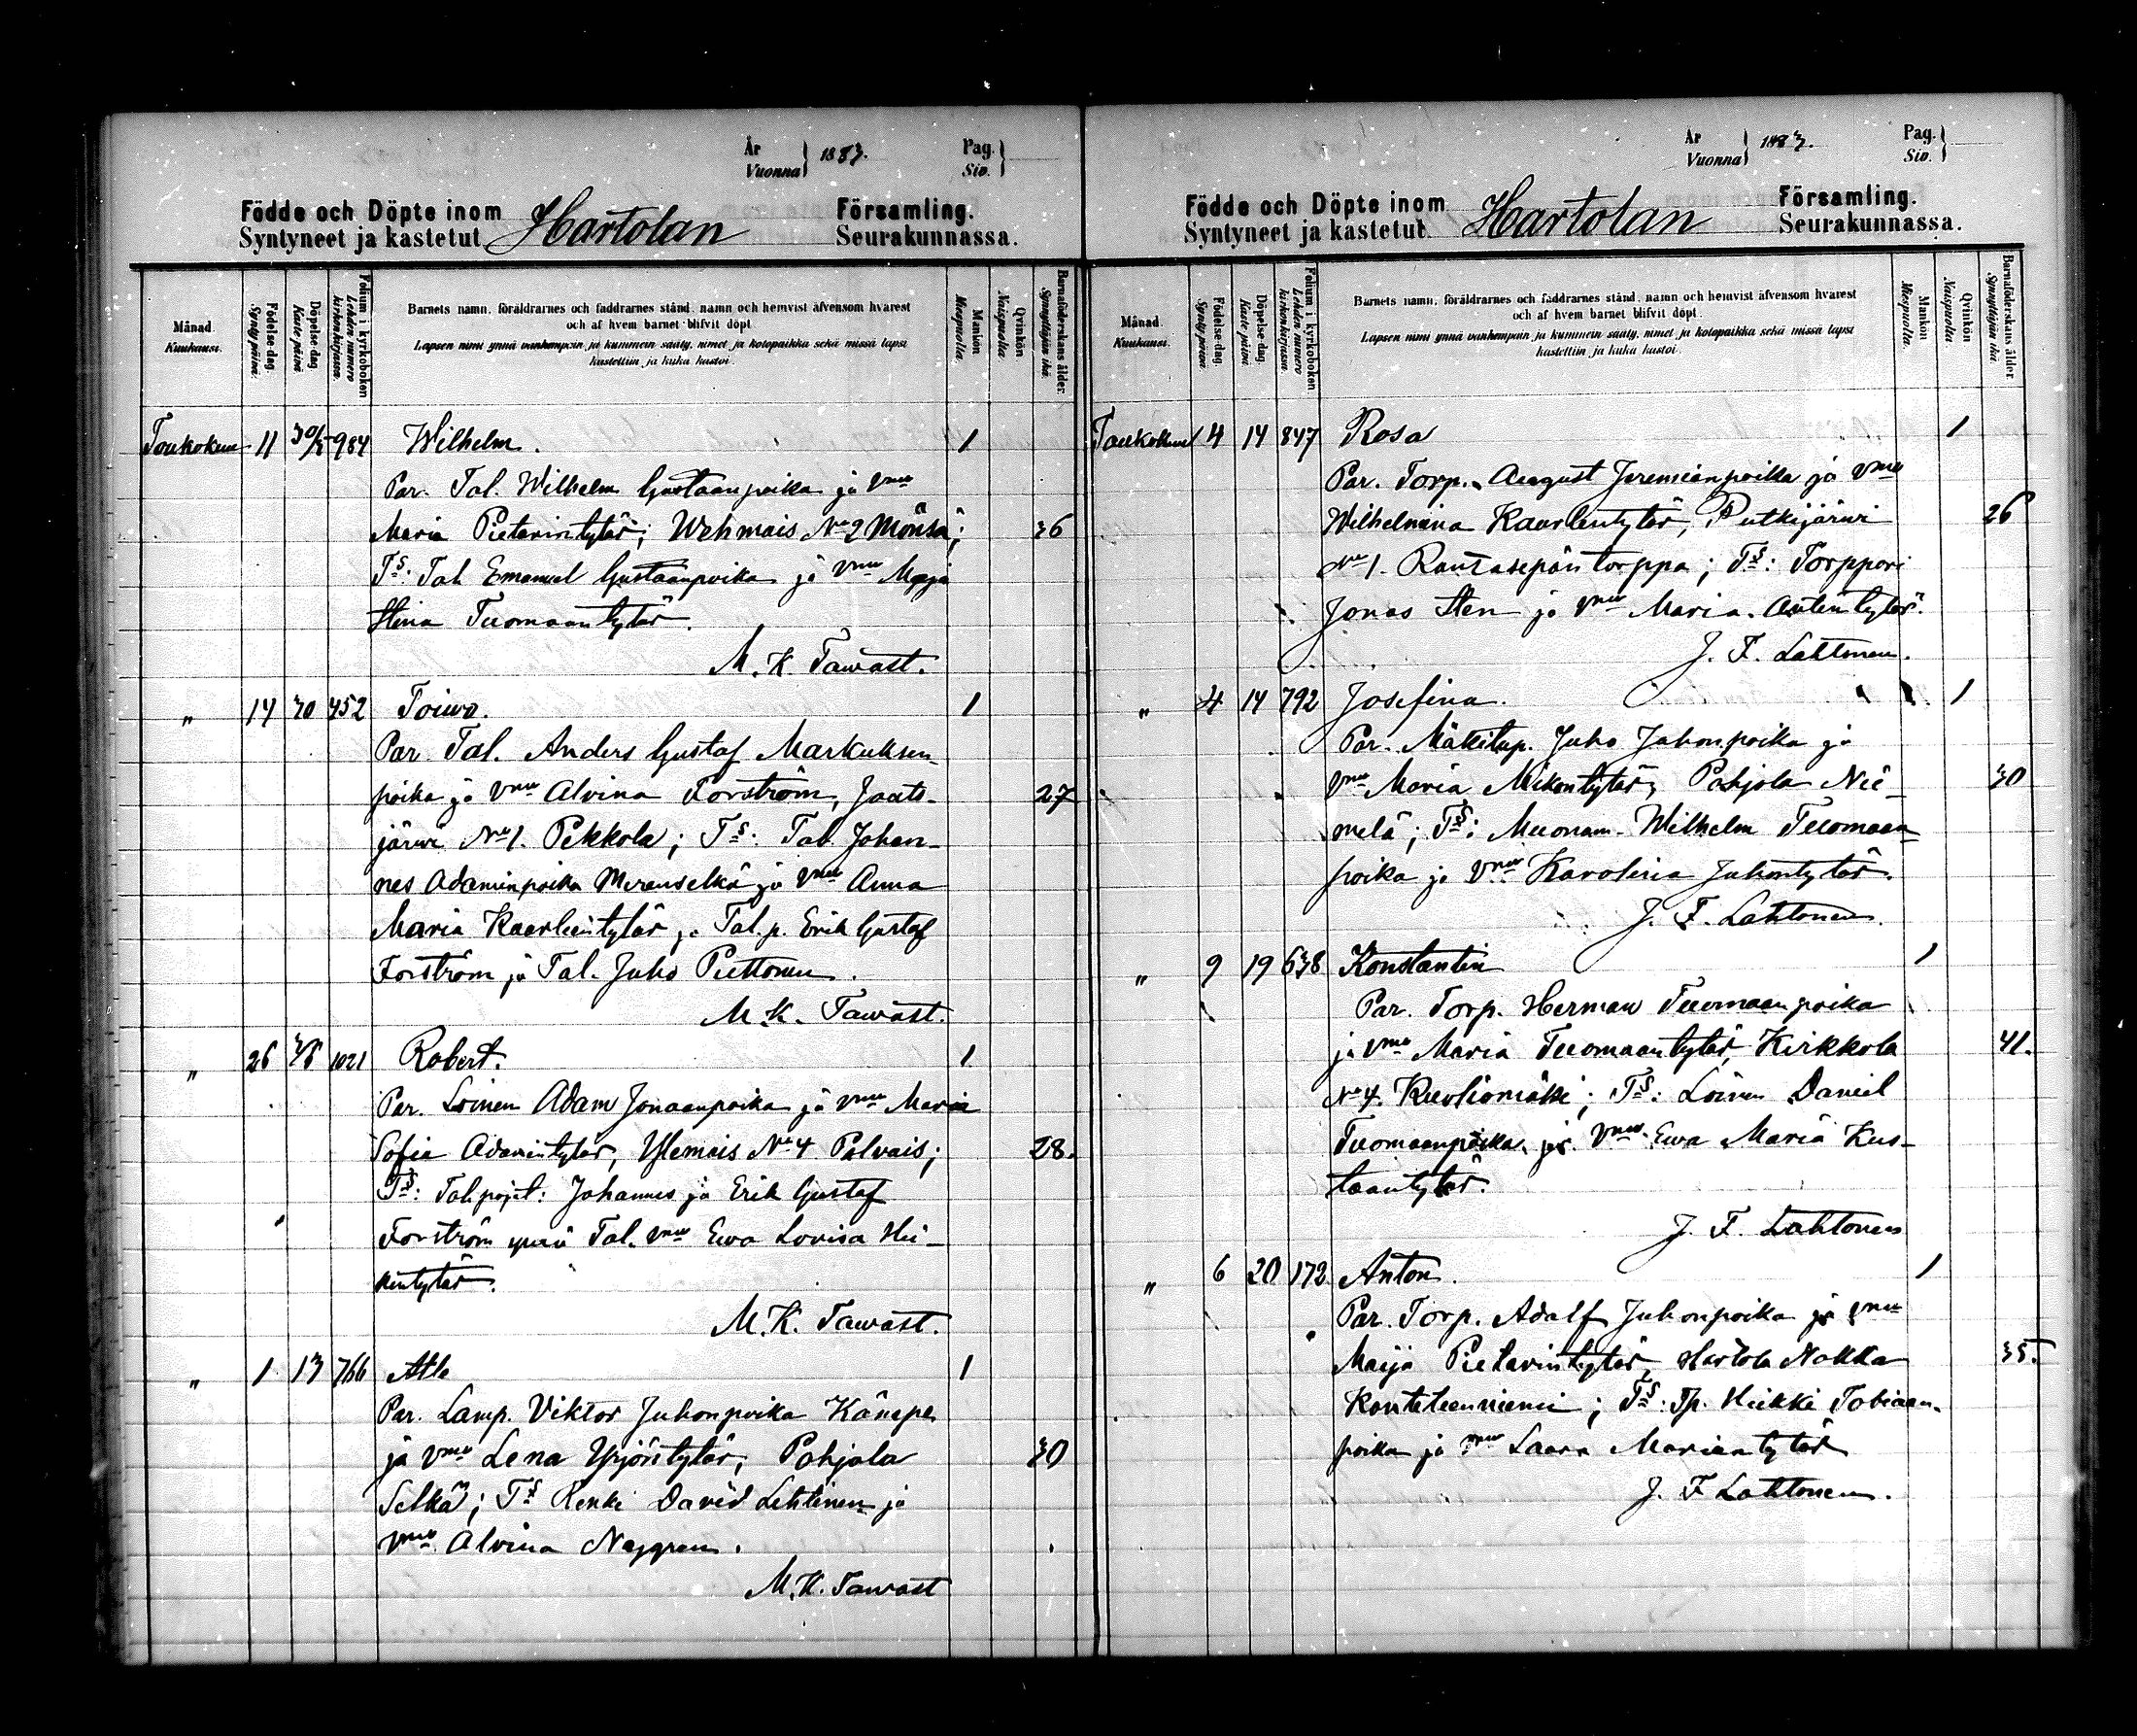 År
Vuonna } 1883.
Pag.
Siv. }
Födde och Döpte inom
Syntyneet ja kastetut
Hartolan
Församling.
Seurakunnassa.
Månad.
Kuukausi.
Födelse dag.
Synty päivä.
Döpelse dag
Kaste päivä
Folium i kyrkoboken
Lehden numero kirkonkirjassa.
Barnets namn, föräldrarnes och faddrarnes stånd, namn och hemvist äfvensom hvarest
och af hvem barnet blifvit döpt.
Lapsen nimi ynnä vanhempain ja kummein sääty, nimet ja kotopaikka sekä missä lapsi
kastettiin ja kuka kastoi.
Mankön
Miespuolia.
Qvinkön
Naispuolia
Barnaföderskans ålder.
Synnyttäjän ikä.
Toukokuu 11 30/5 984 Wilhelm. 1
Par. Tal. Wilhelm Gustaanpoika ja vmo
Maria Pietarintytär; Wehmais No 2 Mönsä; 36
Ts. Tal. Emanuel Gustaanpoika ja vmo Maja
Stina Tuomaantytär.
M. K. Tawast.
" 14 30 452 Toiwo. 1
Par. Tal. Anders Gustaf Markuksen-
poika ja vmo Alvina Forström, Jaats- 27
järwi No 1. Pekkola; Ts: Tal. Johan-
nes Adaminpoika Murenselkä ja vmo Anna
Maria Kaarleintytär, Tal. p. Erik Gustaf
Forström ja Tal. Juho Puttonen.
M. K. Tawast.
" 26 1021 Robert. 1
Par. Loinen Adam Jonaanpoika ja vmo Maria
Sofia Adamintytär, Ylemais No 4 Palvais; 28.
Ts: Tal. pojat: Johannes ja Erik Gustaf
Forström ynnä Tal. vmo Ewa Lovisa Hei-
kintytär.
M. K. Tawast.
" 1 13 766 Atle 1
Par. Lamp. Viktor Juhonpoika Kämpe
ja vmo Lena Yrjöntytär, Pohjola 30
Selkä; Ts Renki David Lehtinen ja
vmo Alvina Nygren.
M. K. Tawast
År
Vuonna } 1883.
Pag.
Siv. }
Födde och Döpte inom
Syntyneet ja kastetut
Hartolan
Församling.
Seurakunnassa.
Månad.
Kuukausi.
Födelse dag.
Synty päivä.
Döpelse dag
Kaste päivä
Folium i kyrkoboken
Lehden numero kirkonkirjassa.
Barnets namn, föräldrarnes och faddrarnes stånd, namn och hemvist äfvensom hvarest
och af hvem barnet blifvit döpt.
Lapsen nimi ynnä vanhempain ja kummein sääty, nimet ja kotopaikka sekä missä lapsi
kastettiin ja kuka kastoi.
Mankön
Miespuolia
Qvinkön
Naispuolia
Barnaföderskans ålder.
Synnyttäjän ikä.
Toukokuu 4 14 847 Rosa 1
Par. Torp. August Jeremianpoika ja vmo
Wilhelmina Kaarlentytär, Putkijärwi 26
No 1. Rautasepän torppa; Ts: Torppari
Jonas Sten ja vmo Maria Antintytär.
J. F. Lahtonen.
" 4 14 792 Josefina. 1
Par. Mäkitup. Juho Juhonpoika ja
vmo Maria Mikontytär, Pohjola Nie- 30
melä; Ts: Muonam. Wilhelm Tuomaan-
poika ja vmo Karolina Juhontytär.
J. F. Lahtonen.
" 9 19 638 Konstantin 1
Par. Torp. Herman Tuomaanpoika
ja vmo Maria Tuomaantytär, Kirkkola 41.
No 4. Kuoliomäki; Ts: Loinen Daniel
Tuomaanpoika ja vmo Ewa Maria Kus-
taantytär.
J. F. Lahtonen
" 6 20 172 Anton. 1
Par. Torp. Adolf Juhonpoika ja vmo
Maija Pietarintytär, Hartola Nokka 35.
Konteteenniemi; Ts: Tp. Heikki Tobiaan-
poika ja vmo Laara Mariantytär
J. F. Lahtonen.